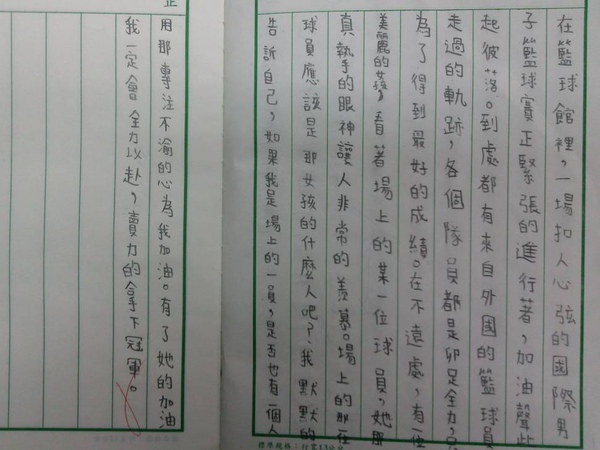 在籃球館裡，一場扣人心弦的國際男
子籃球賽正緊張的進行著，加油聲此
起彼落。到處都有來自外國的籃球員
走過的軌跡，各個隊員都是卯足全力，只
為了得到最好的成績。在不遠處，有一位
美麗的 看著場上的某一位球員，她那
真執手的眼神讓人非常的羨慕。場上的那位
球員應該是那女孩的什麼人吧？我默默的
告訴自己，如果我是場上的一員，是否也有一個人
用那專注不渝的心為我加油。有了她的加油
我一定會全力以赴，賣力的拿下冠軍。